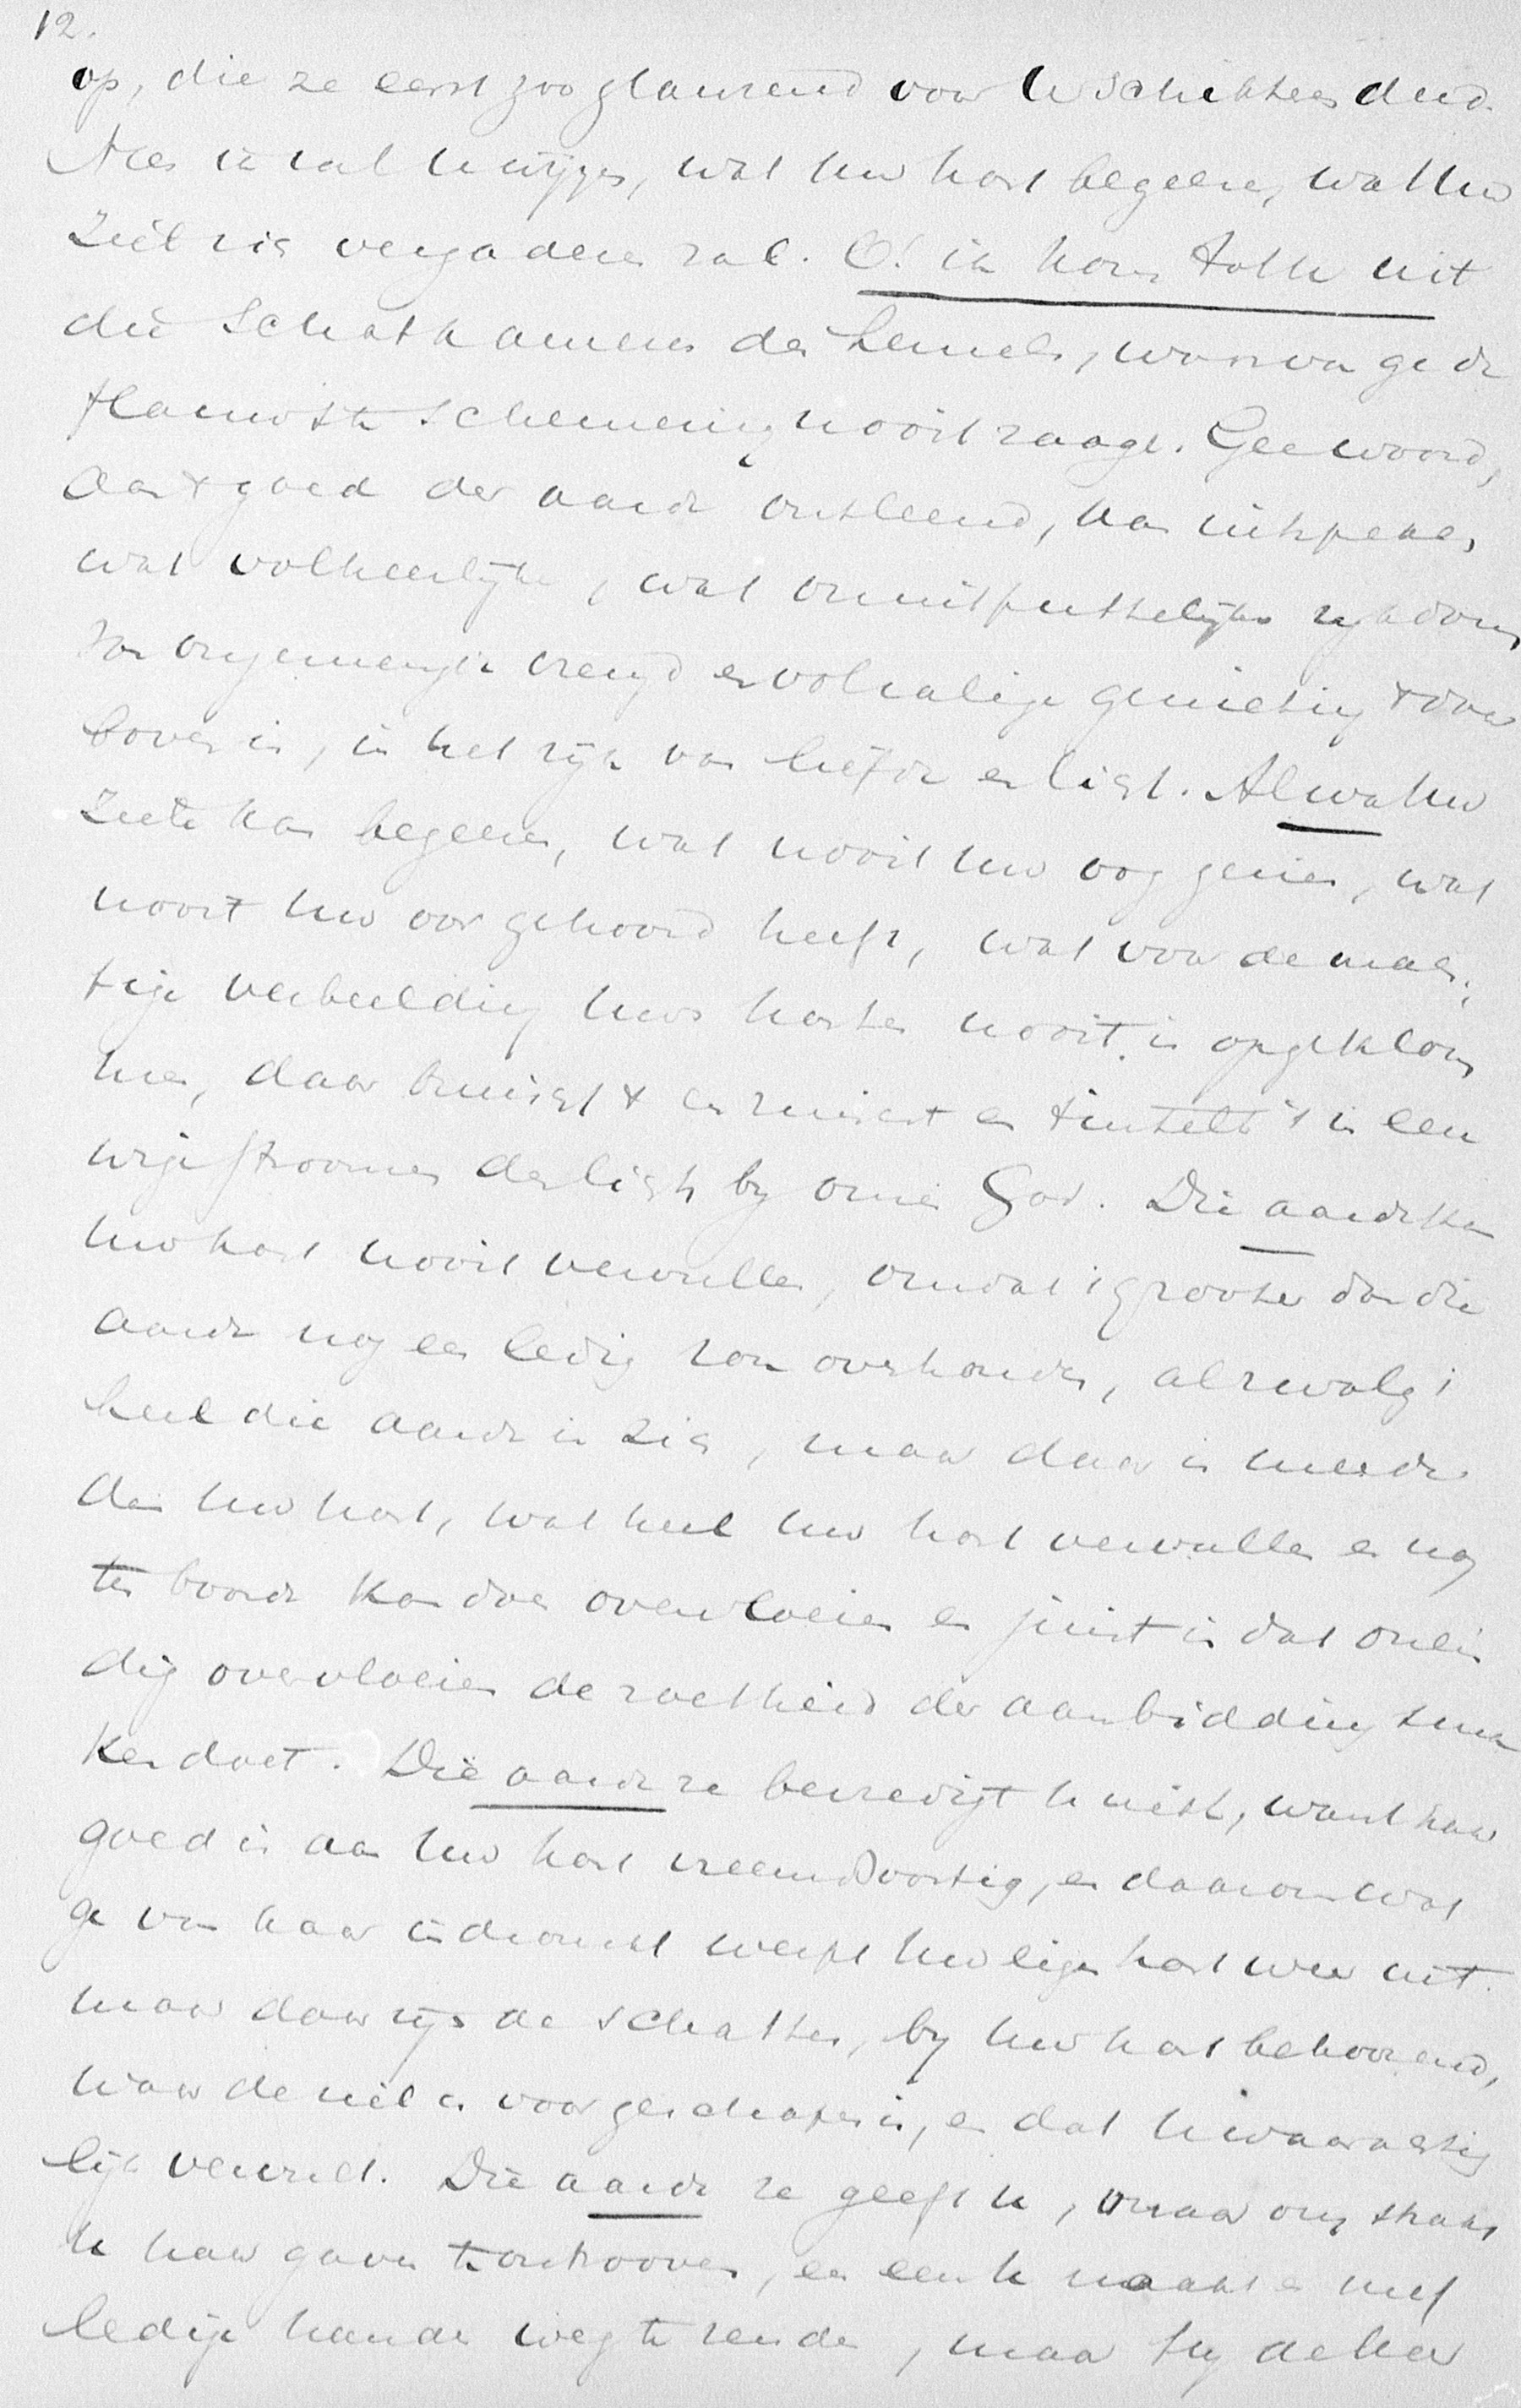 12.
op, die ze eerst zoo glansend voor U schitteren deed.
Neen ik zal U wijzen, wat Uw hart begeeren, wat Uw
ziel zig vergaderen zal. O! ik kom tot U uit
die schatkameren des hemels, waarvan ge de
flauwste schemering nooit zaagt. Geen woord,
aan 't goed der aarde ontleend, kan uitspreken,
wat volheerlijke, wat onuitputtelijke rijkdom
van ongemengde vreugd en volzalige genieting daar
boven is, in het rijk van liefde en ligt. Al wat Uw
ziele kan begeeren, wat nooit Uw oog gezien, wat
nooit Uw oor gehoord heeft, wat voor de mach-
tige verbeelding Uws harten nooit is opgeklom
men, daar bruischt 't en ruischt en tintelt 't in een
wige stroomen des lichts by onzen God. Die aarde kan
Uw hart nooit vervullen, omdat 't grooter dan die
aarde nog een ledig zou overhouden, al zwolg 't
heel die aarde in zich, maar daar is meerder
dan Uw hart, wat heel Uw hart vervullen en nog
ten boorde kan doen overvloeien en juist in dat onein
dig overvloeien de zoetheid der aanbidding sma
ken doet. Die aarde ze bevredigt U niet, want haar
goed is aan Uw hart vreemdsoortig, en daarom wat
ge van haar indronkt werpt Uw eigen hart weer uit.
maar daar zijn de schatten, by Uw hart behoorend,
waar de ziel er voor geschapen is, en dat U waarachtig
lijk vervult. Die aarde ze geeft U, maar om straks
U haar gaven te ontrooven, en een U naakt en met
ledige handen weg te zenden, maar by den Heer